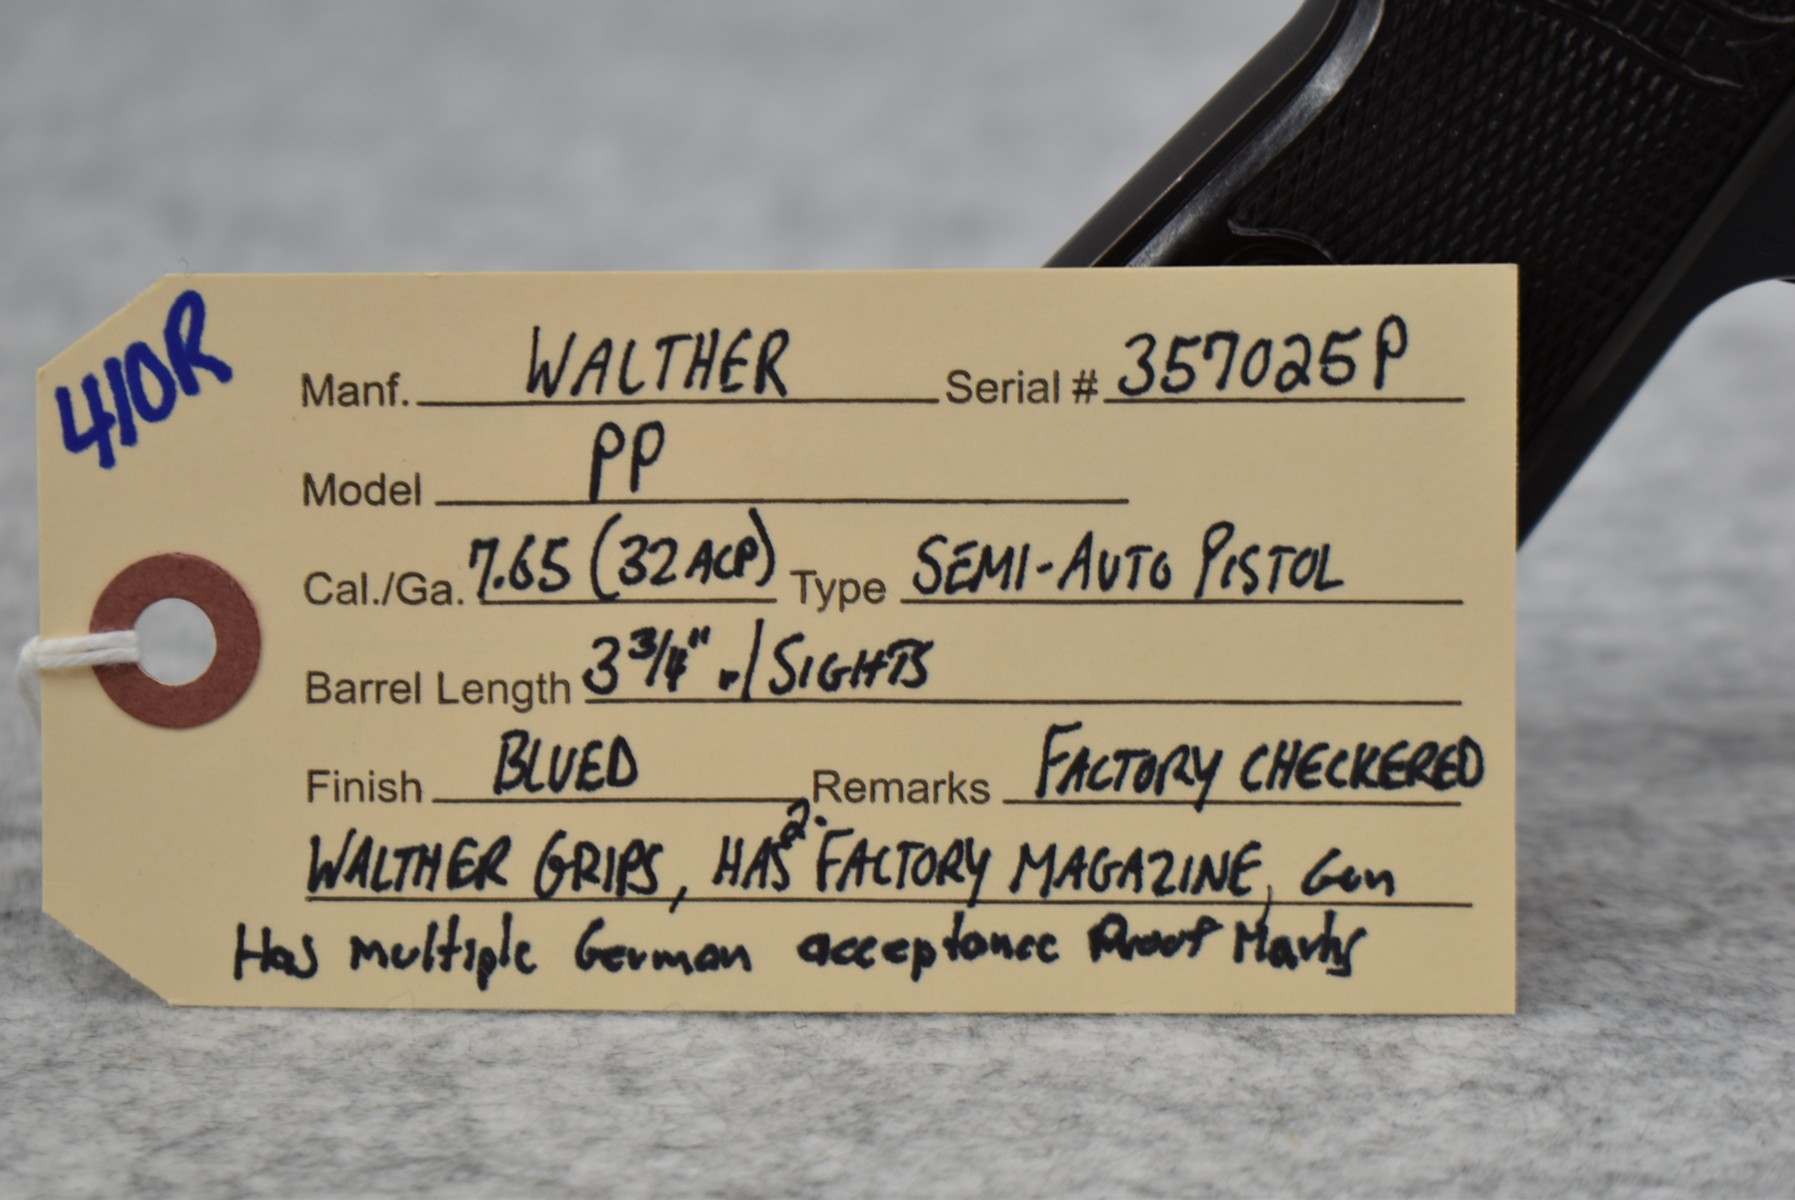 410R
Manf. WALTHER Serial # 357025P
Model PP
Cal./Ga. 7.65 (32 ACP) Type SEMI-AUTO PISTOL
Barrel Length 3 3/4" w/ SIGHTS
Finish BLUED Remarks FACTORY CHECKERED
WALTHER GRIPS, HAS 2. FACTORY MAGAZINE, Gun
Has multiple German acceptance Proof Marks